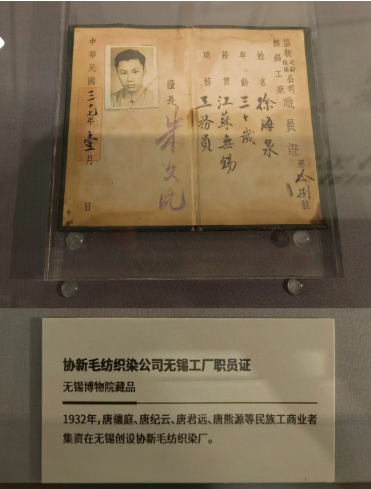 協新毛紡織染公司
無錫工廠職員證
第拾捌號
姓名 徐海泉
年齡 三十歲
籍貫 江蘇無錫
職務 工務員
廠長
中華民國三十七年壹月 日
协新毛纺织染公司无锡工厂职员证
无锡博物院藏品
1932年,唐骧庭、唐纪云、唐君远、唐熊源等民族工商业者
集资在无锡创设协新毛纺织染厂。